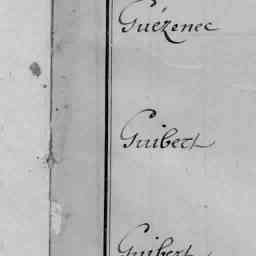 Guézenec
Guibert
Guibert